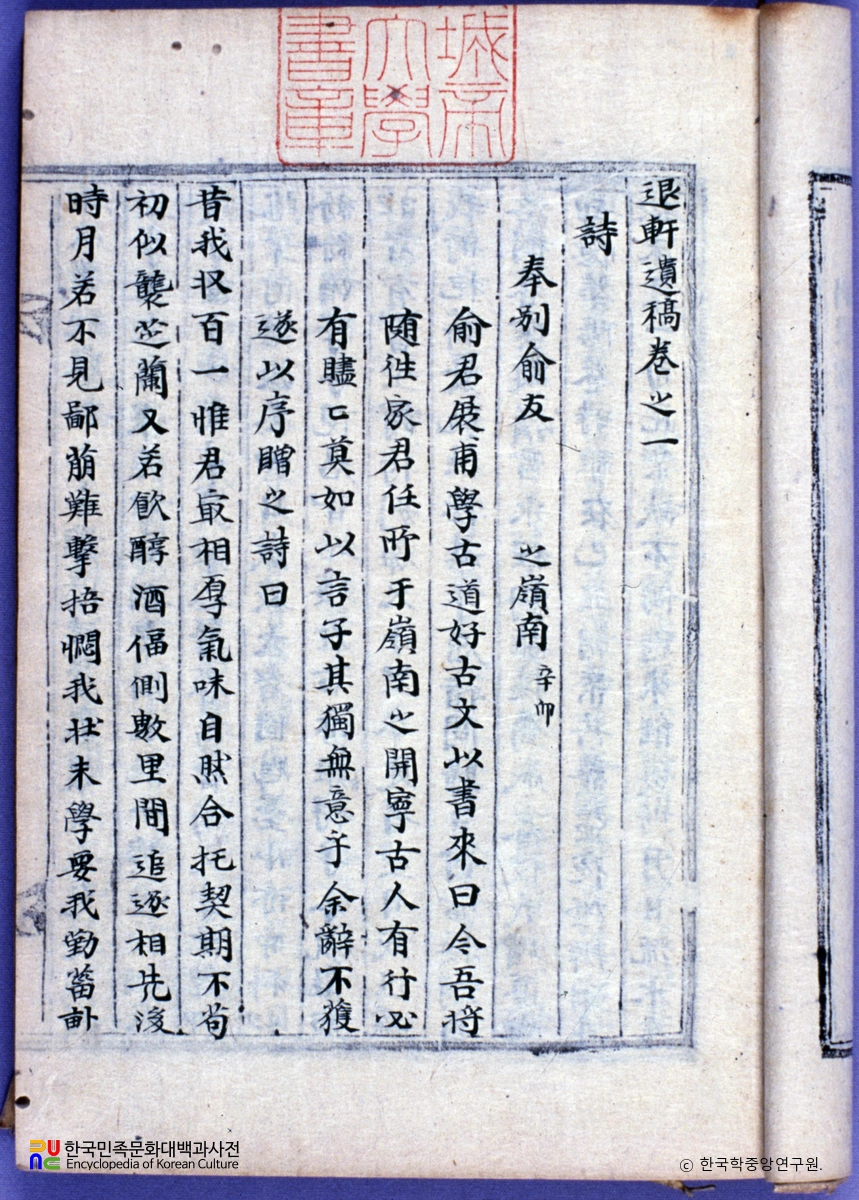 城帝
大學
書章
退軒遺稿卷之一
詩
奉別俞友 之嶺南 辛卯
俞君展甫學古道好古文以書來曰今吾將
随徃家君任所于嶺南之開寧古人有行必
有贐匕莫如以言子其獨無意乎余辭不獲
遂以序贈之詩曰
昔我収百一惟君㝡相厚氣味自然合托契期不苟
初似襲芝蘭又若飮醇酒偪側數里間追逐相先後
時月若不見鄙萠難擊掊憫我状未學要我勤菑畒
한국민족문화대백과사전
Encyclopedia of Korean Culture
© 한국학중앙연구원.